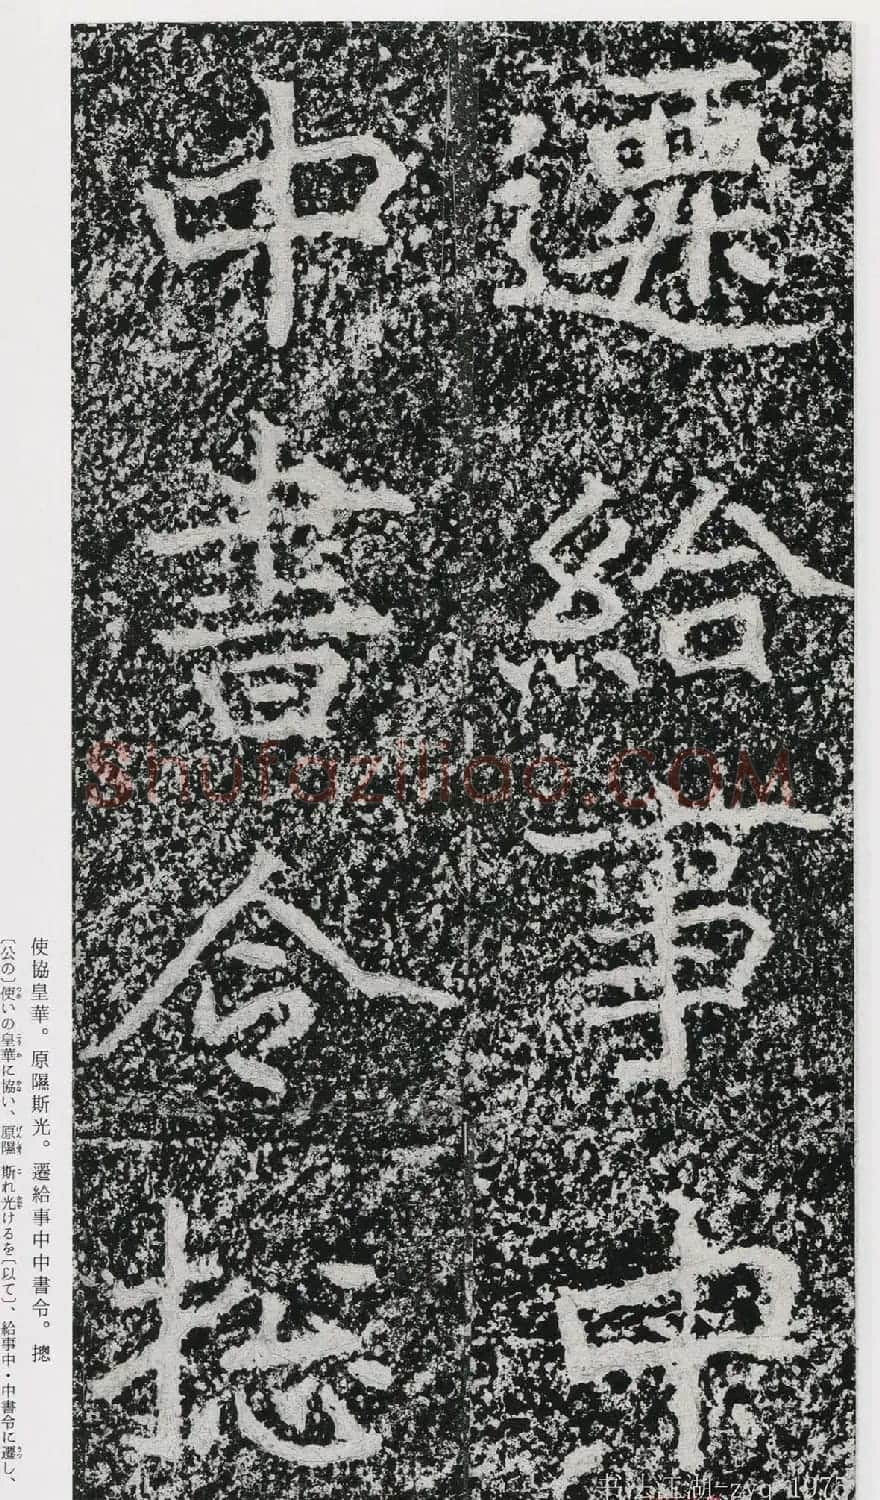 遷給事中
中書令捴
使協皇華。原隰斯光。遷給事中中書令。摠
〔公の〕使いの皇華に協い、原隰斯れ光けるを〔以て〕、給事中・中書令に遷し、
Shufaziliao.COM